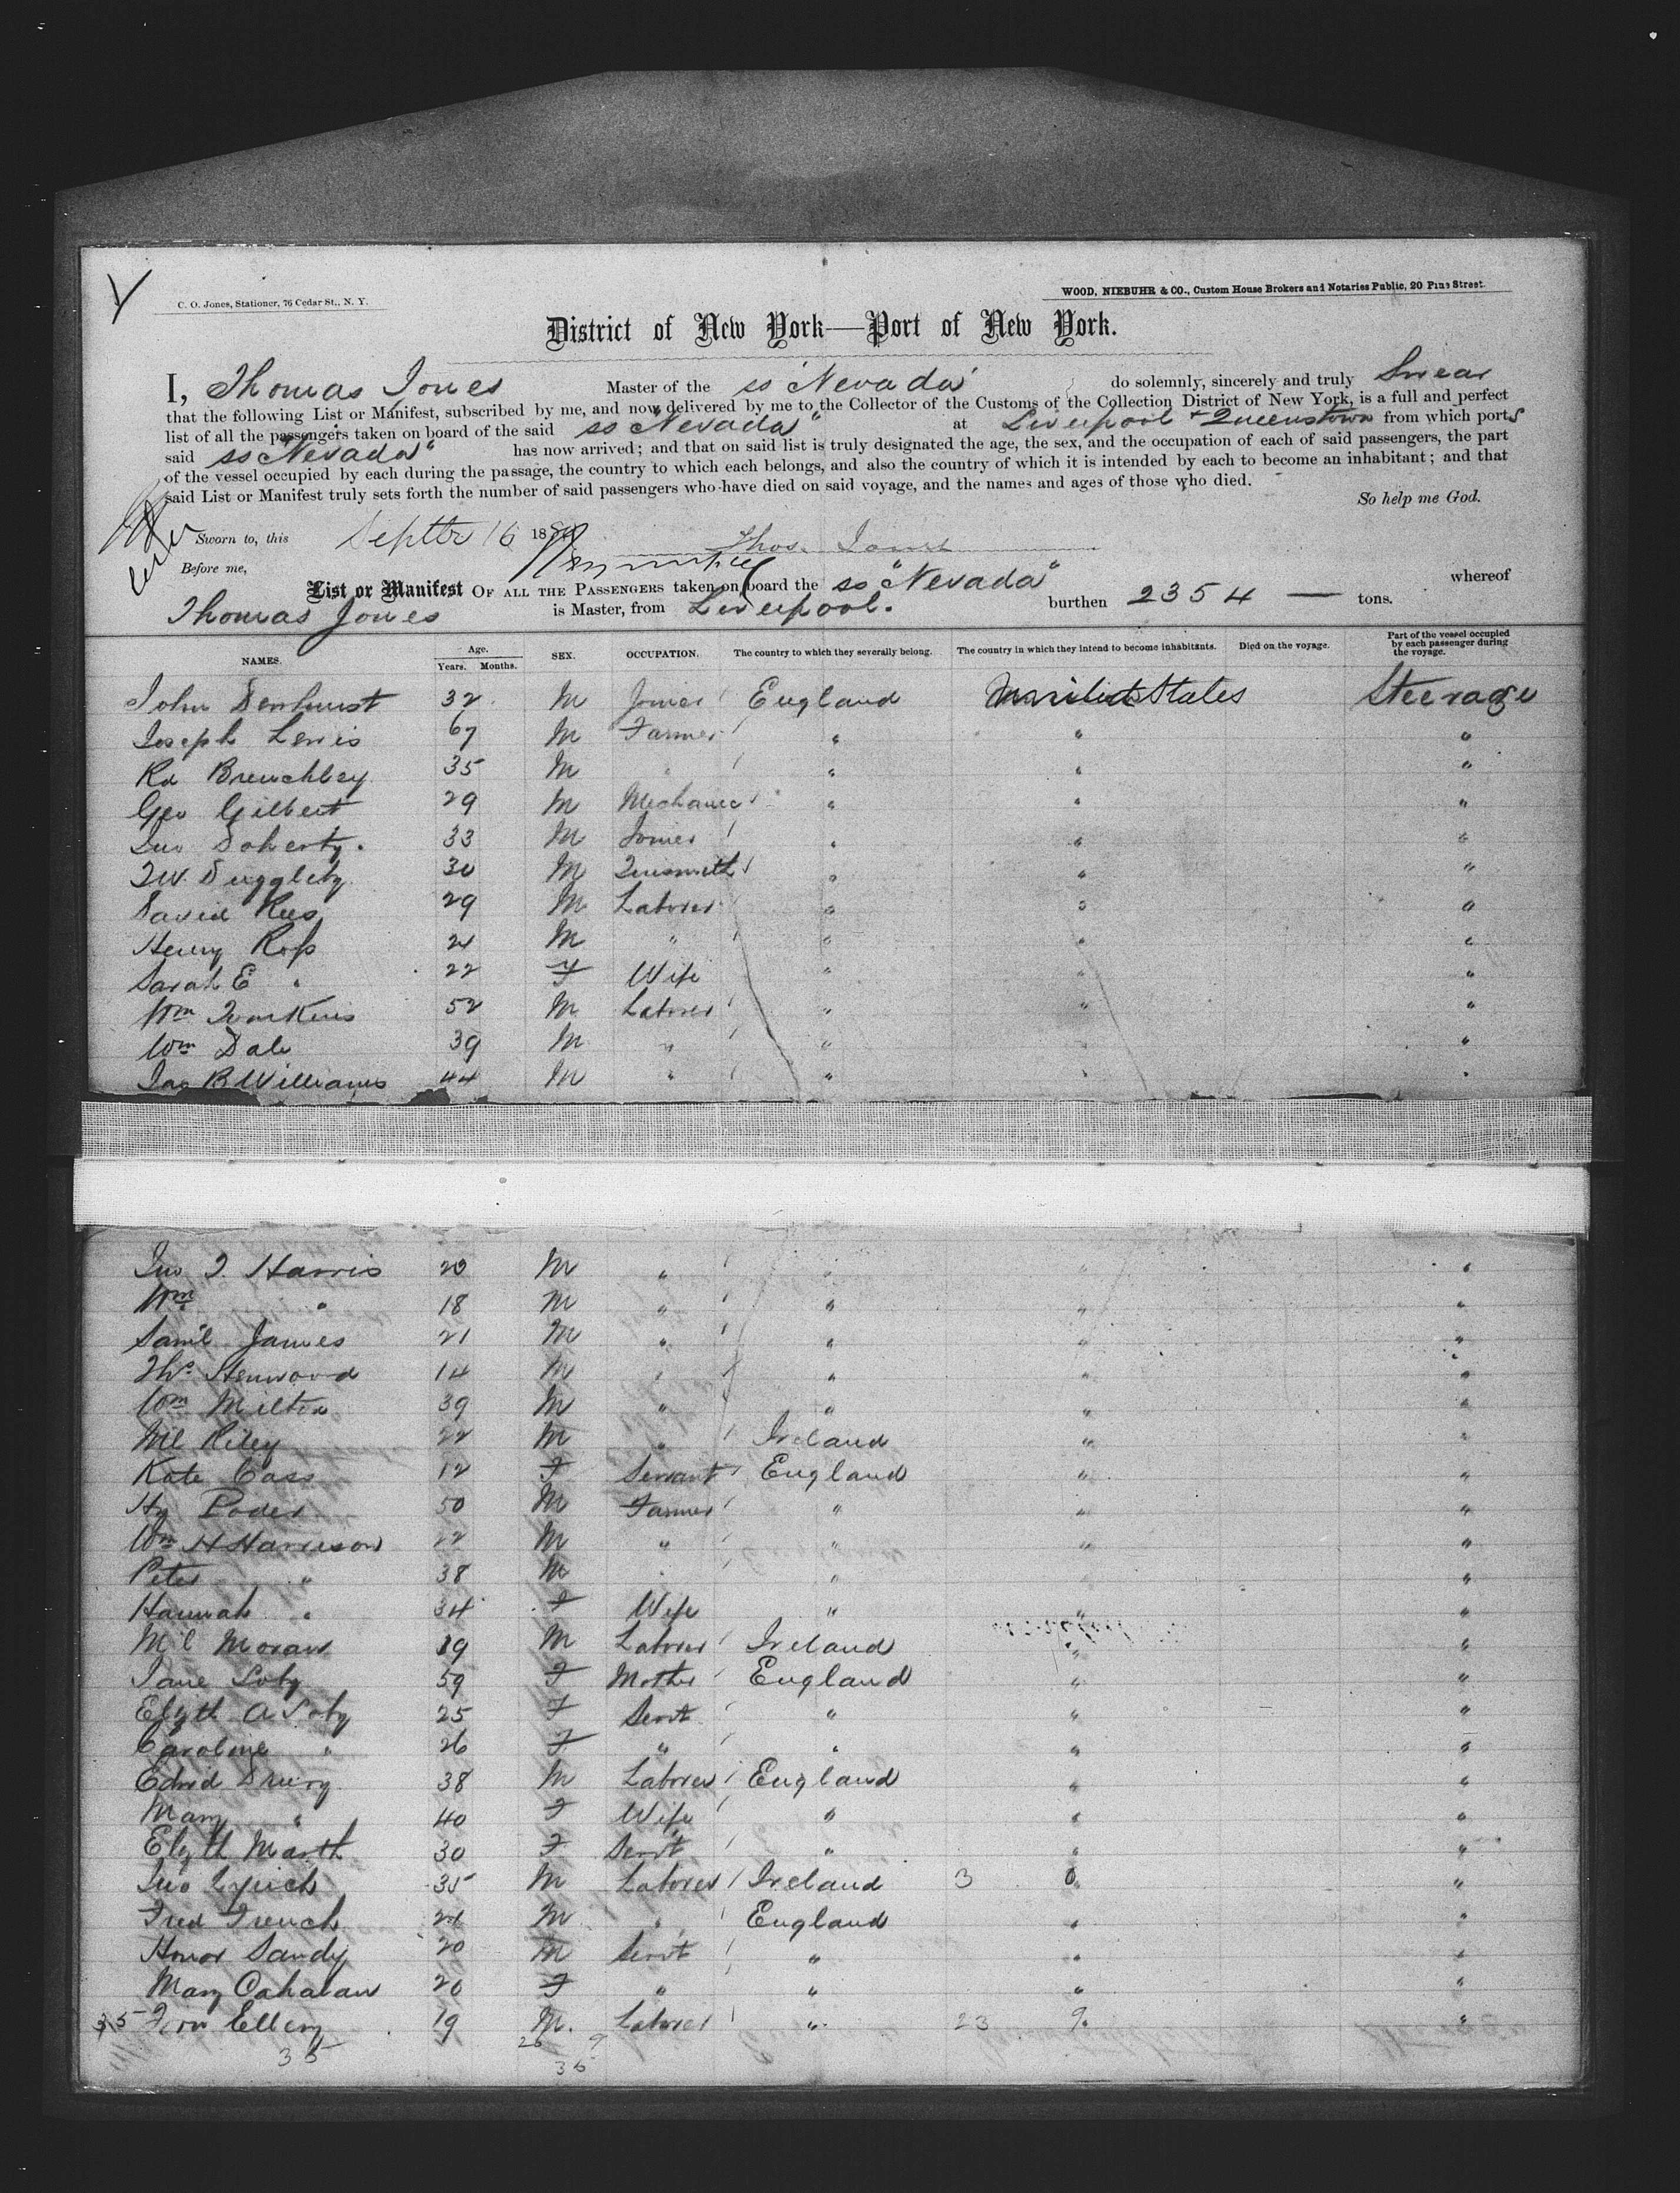 C. O. Jones, Stationer, 76 Cedar St., N. Y.
WOOD, NIEBUHR & CO., Custom House Brokers and Notaries Public, 20 Pine Street.
District of New York—Port of New York.
I, Thomas Jones Master of the ss "Nevada" do solemnly, sincerely and truly Swear
that the following List or Manifest, subscribed by me, and now delivered by me to the Collector of the Customs of the Collection District of New York, is a full and perfect
list of all the passengers taken on board of the said ss "Nevada" at Liverpool + Queenstown from which ports
said ss "Nevada" has now arrived; and that on said list is truly designated the age, the sex, and the occupation of each of said passengers, the part
of the vessel occupied by each during the passage, the country to which each belongs, and also the country of which it is intended by each to become an inhabitant; and that
said List or Manifest truly sets forth the number of said passengers who have died on said voyage, and the names and ages of those who died.
So help me God.
Sworn to, this Septbr 16 188
Thos. Jones
Before me,
List or Manifest OF ALL THE PASSENGERS taken on board the ss "Nevada" whereof
Thomas Jones is Master, from Liverpool. burthen 2354 — tons.
NAMES. Age. Years. Months. SEX. OCCUPATION. The country to which they severally belong. The country in which they intend to become inhabitants. Died on the voyage. Part of the vessel occupied by each passenger during the voyage.
John Denhurst 32 M Joiner England United States Steerage
Joseph Lewis 67 M Farmer " " "
Rd Brenchley 35 M " " " "
Geo Gilbert 29 M Mechanic " " "
Jno Doherty. 33 M Joiner " " "
T.W. Duggleby 30 M Tinsmith " " "
David Rees 29 M Laborer " " "
Henry Ross 24 M " " " "
Sarah E " 22 F Wife " " "
Wm 52 M Laborer " " "
Wm Dale 39 M " " "
Jas B Williams 44 M " " " "
Jno T. Harris 20 M " " " "
Wm " 18 M " " " "
Saml James 21 M " " " "
Ths Henwood 14 M " " " "
Wm Milton 39 M " " " "
Ml Riley 22 M " Ireland " "
Kate Cass 12 F Servant England " "
Hy 50 M Farmer " " "
Wm H Harrison 22 M " " " "
Peter " 38 M " " "
Hannah " 34 F Wife " " "
Ml Moran 19 M Laborer Ireland " "
Jane Soby 59 F Mother England " "
Elizth A Soby 25 F Servt " " "
Caroline " 26 F " " " "
Edwd Drury 38 M Laborer England " "
Mary " 40 F Wife " " "
Elizth Marth 30 F Servt " " "
Jno Lynch 35 M Laborer Ireland 3 0 " "
Fred French 24 M " England " "
Honor Sandy 20 M Servt " " "
Mary Cahalan 20 F " " " "
35 Tom Ellery 19 M. Laborer " 23 9 "
35 26 9
35